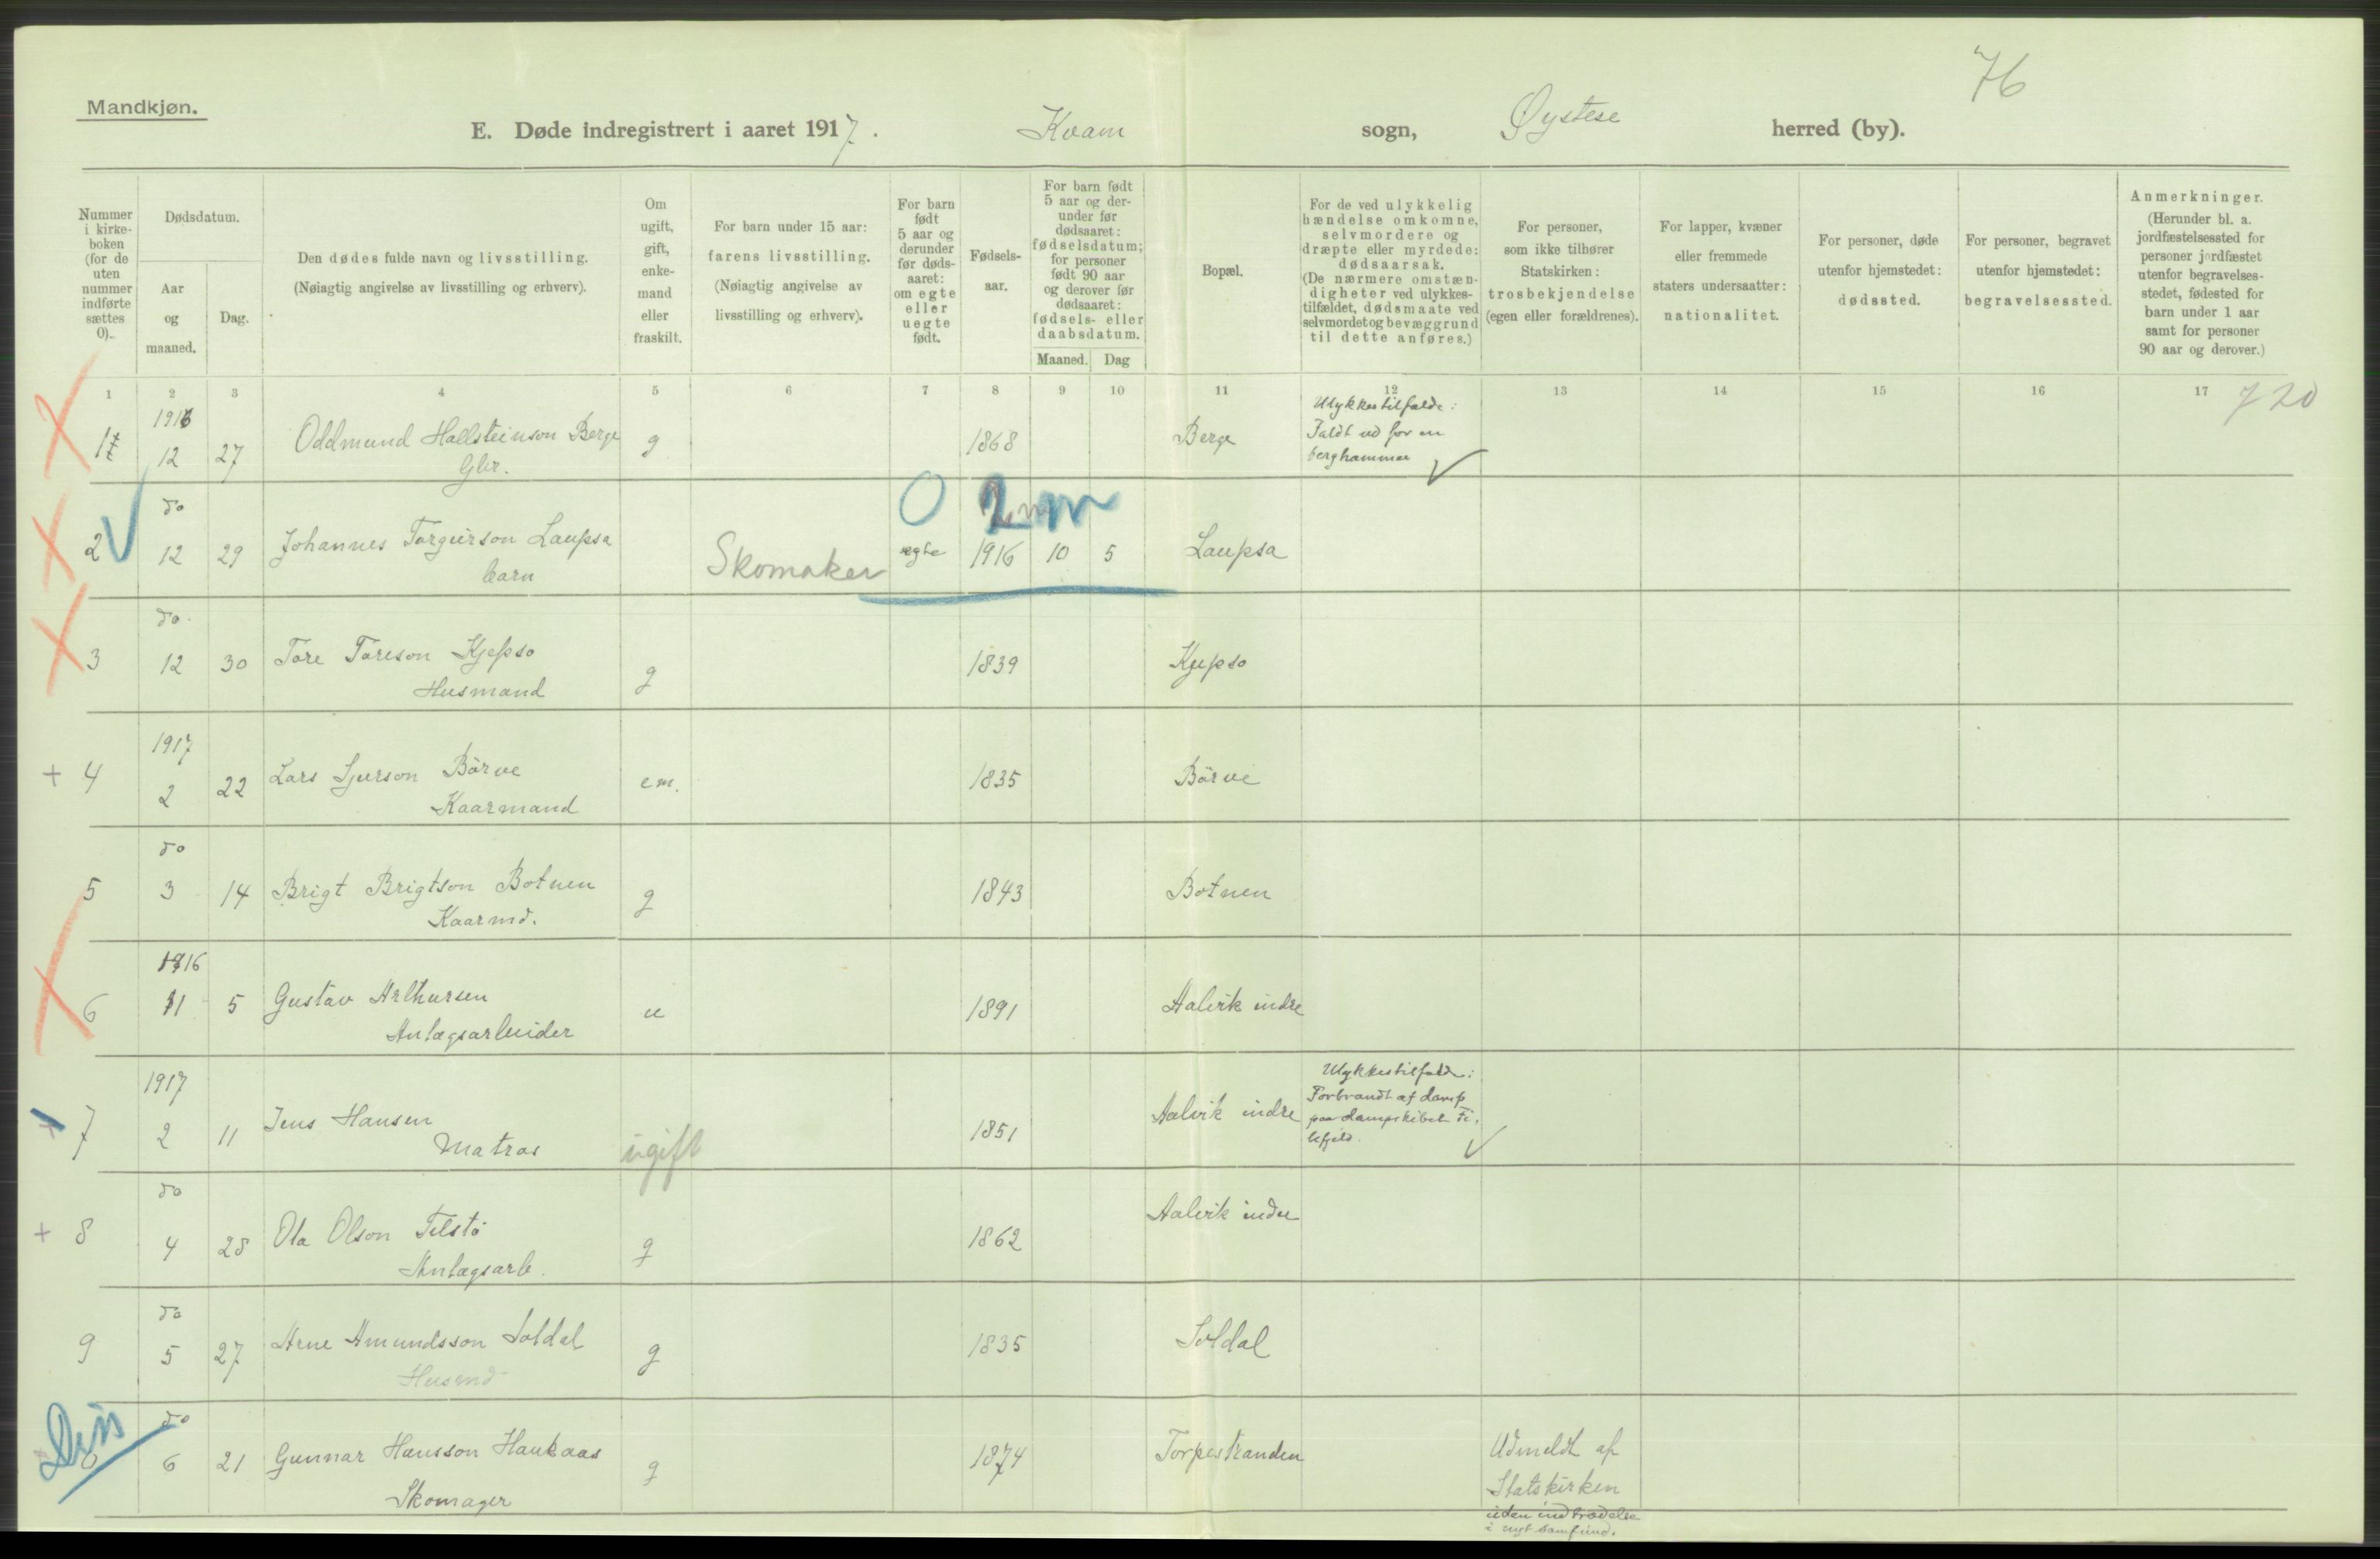 76
Mandkjøn.
E. Døde indregistrert i aaret 1917. Kvam sogn, Øystese herred (by).
Nummer i kirke-boken (for de uten nummer indførte sættes 0).
Dødsdatum.
Aar og maaned.
Dag.
Den dødes fulde navn og livsstilling.
(Nøiagtig angivelse av livsstilling og erhverv).
Om ugift, gift, enke-mand eller fraskilt.
For barn under 15 aar:
farens livsstilling.
(Nøiagtig angivelse av livsstilling og erhverv).
For barn født 5 aar og derunder før døds-aaret: om egte eller uegte født.
Fødsels-aar.
For barn født 5 aar og der-under før dødsaaret: fødselsdatum; for personer født 90 aar og derover før dødsaaret: fødsels- eller daabsdatum.
Maaned. Dag
Bopæl.
For de ved ulykkelig hændelse omkomne, selvmordere og dræpte eller myrdede: dødsaarsak. (De nærmere omstæn-digheter ved ulykkes-tilfældet, dødsmaate ved selvmordet og bevæggrund til dette anføres.)
For personer, som ikke tilhører Statskirken: trosbekjendelse (egen eller forældrenes).
For lapper, kvæner eller fremmede staters undersaatter: nationalitet.
For personer, døde utenfor hjemstedet: dødssted.
For personer, begravet utenfor hjemstedet: begravelsessted.
Anmerkninger.
(Herunder bl. a. jordfæstelsessted for personer jordfæstet utenfor begravelses-stedet, fødested for barn under 1 aar samt for personer 90 aar og derover.)
1 2 3 4 5 6 7 8 9 10 11 12 13 14 15 16 17
720
1 1916 12 27 Oddmund Hallsteinson Berge g 1868 Berge Ulykkestilfælde:
Gbr. Faldt ud for en
berghammer
0 2 m
2 do 12 29 Johannes Torgeirson Laupsa Skomaker egte 1916 10 5 Laupsa
barn
3 do 12 30 Tore Toreson Kjepso g 1839 Kjepso
Husmand
4 1917 2 22 Lars Sjurson Börve em. 1835 Börve
Kaarmand
5 do 3 14 Brigt Brigtson Botnen g 1843 Botnen
Kaarmd.
6 1916 11 5 Gustav Arthursen u 1891 Aalvik indre
Anlægsarbeider
7 1917 2 11 Jens Hansen ugift 1851 Aalvik indre Ulykkestilfælde:
Matros Forbrandt af damp
paa dampskibet Fi-
lefjeld.
8 do 4 28 Ola Olson Telstö g 1862 Aalvik indre
Anlægsarb.
9 do 5 27 Arne Amundsson Soldal g 1835 Soldal
Husmd
Dis
do 6 21 Gunnar Hansson Haukaas g 1874 Torpestranden Udmeldt af
Skomager Statskirken
uden indtrædelse
i nyt samfund.